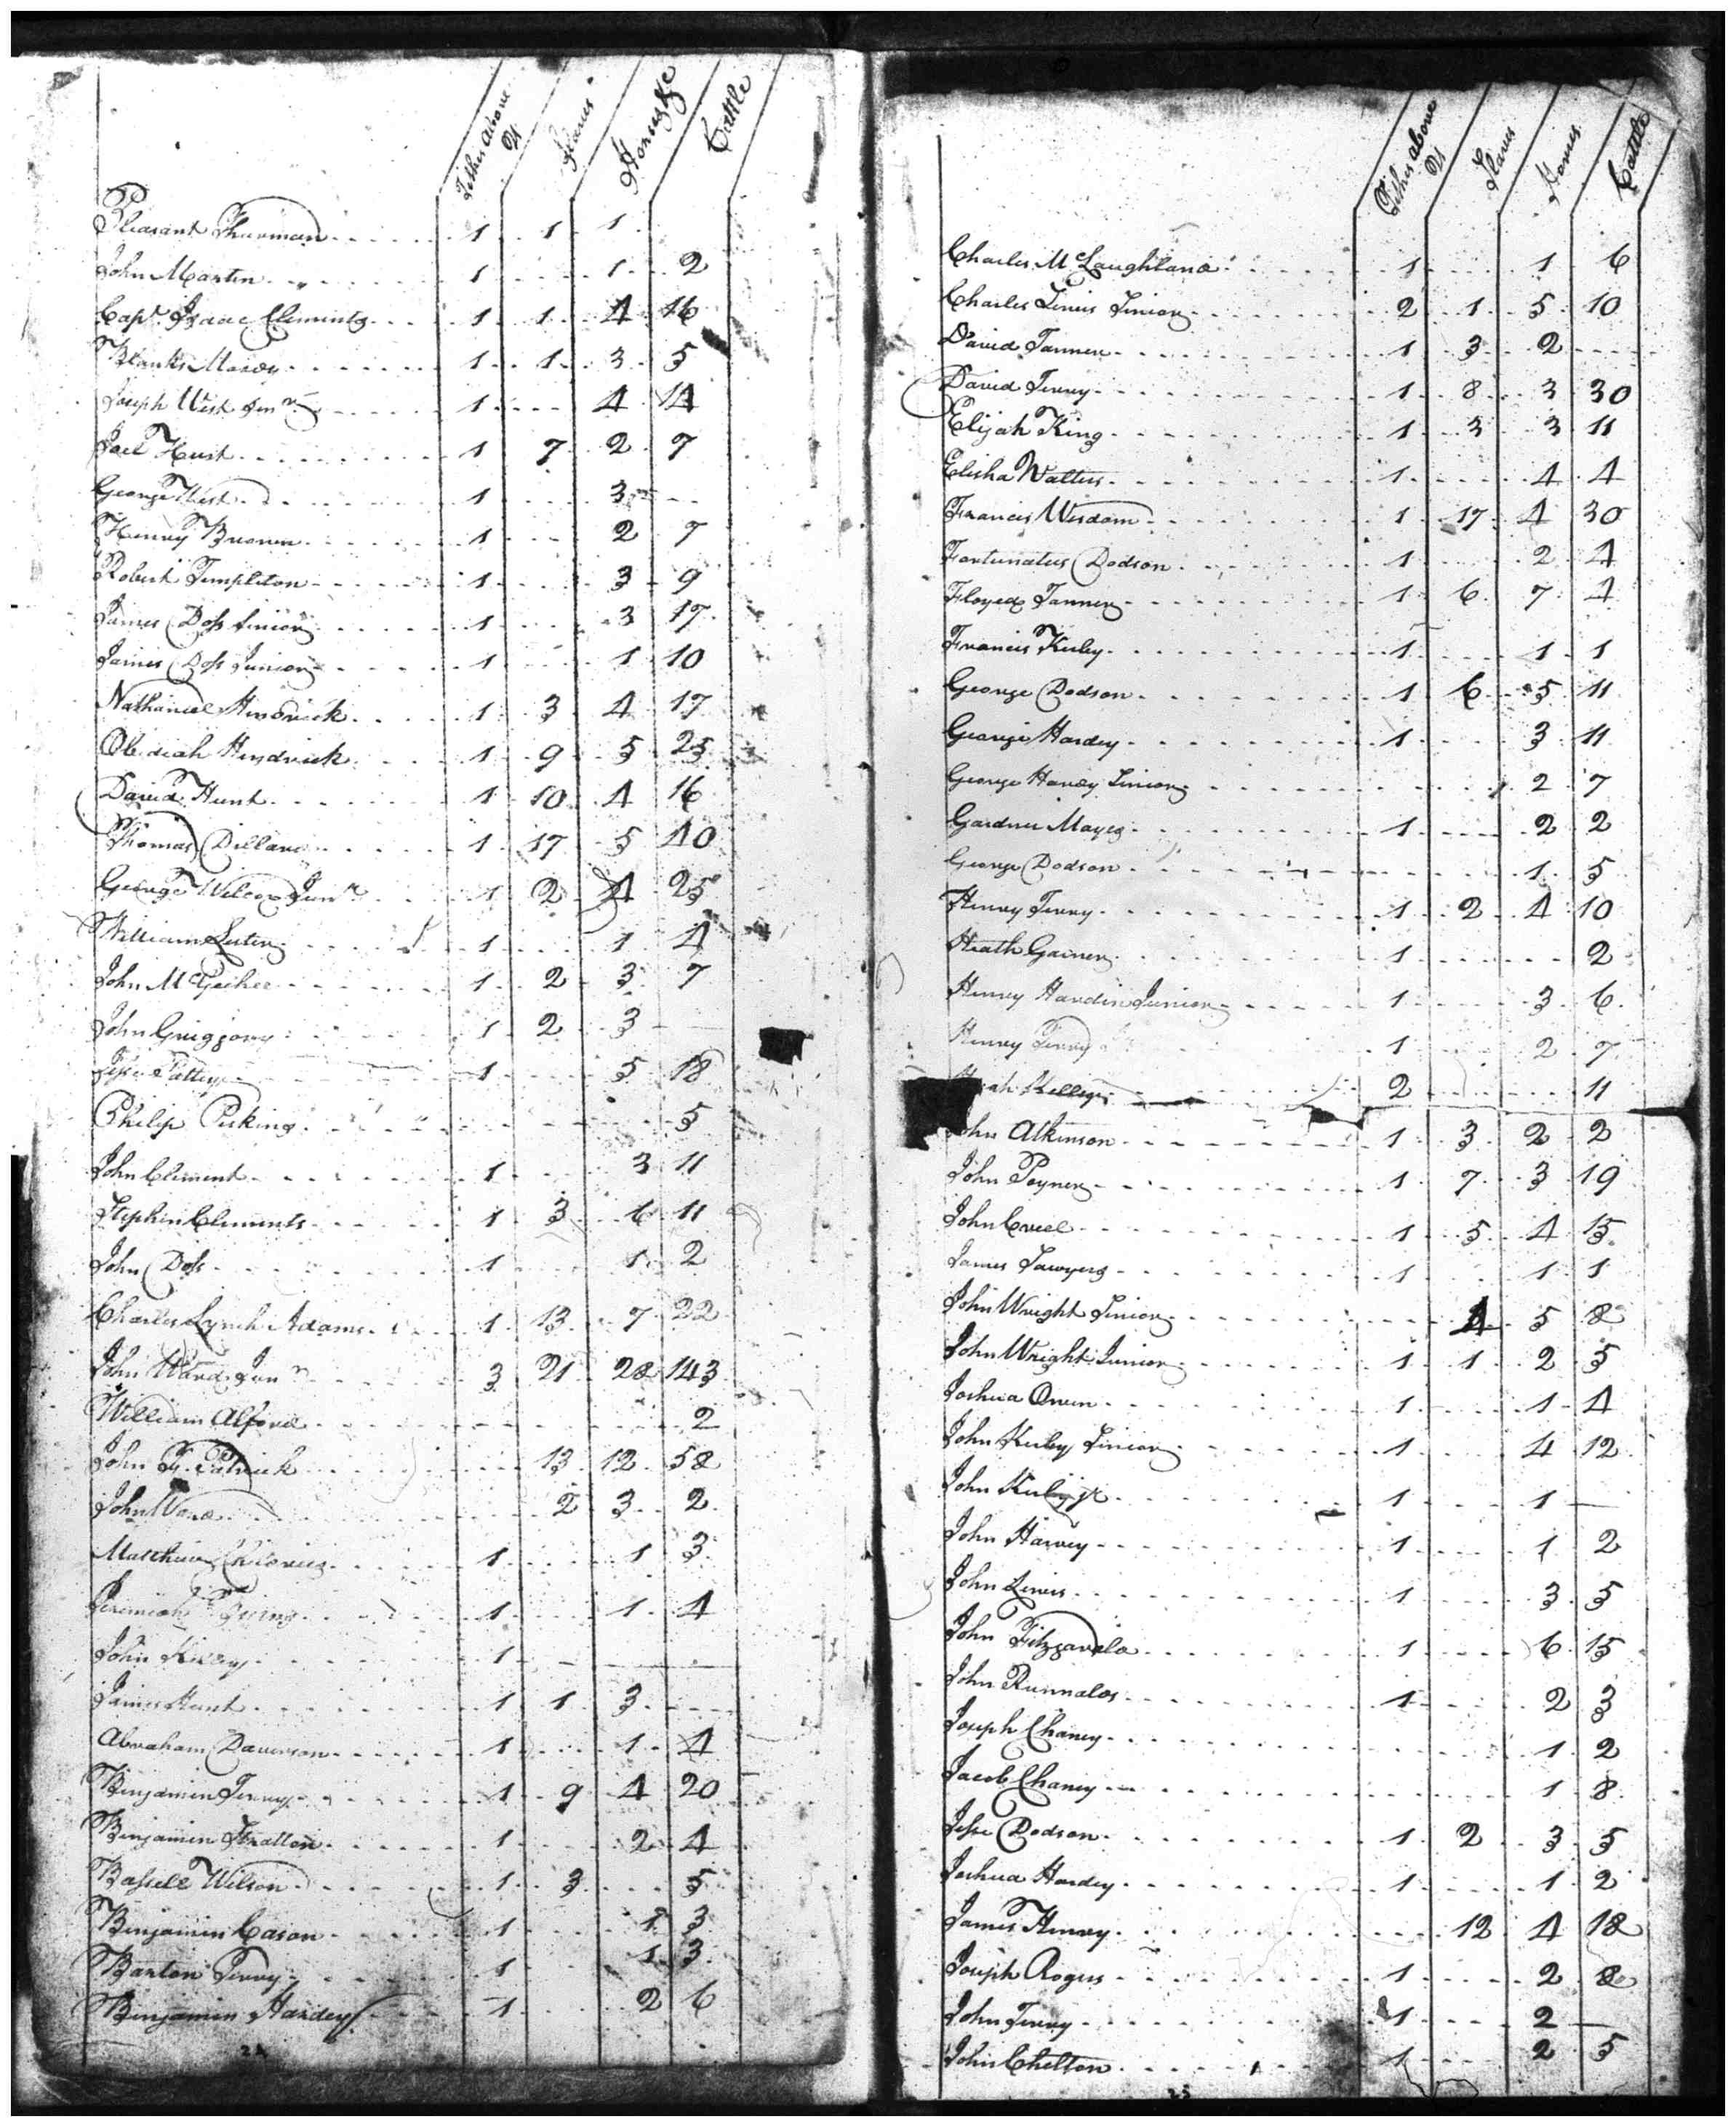 Tithes above 21 Slaves Horses &c Cattle
Pleasant Thurman 1 1 1
John Martin 1 1 2
Capt. Isaac Clements 1 1 4 16
Blanks Moody 1 1 3 5
Joseph West Senr 1 4 14
Joel Hurt 1 7 2 7
George West 1 3
Henry Brown 1 2 7
Robert Templeton 1 3 9
James Doss Senior 1 3 17
James Doss Junior 1 1 10
Nathaniel Hendrick 1 3 4 17
Obediah Hendrick 1 9 5 25
David Hunt 1 10 4 16
Thomas Dillard 1 17 5 40
George Wilcox Junr 1 2 4 25
William 1 1 4
John McGehee 1 2 3 7
John Griggory 1 2 3
Jesse Patty 1 5 18
Philip Perkins 5
John Clement 1 3 11
Stephen Clements 1 3 6 11
John Doss 1 1 2
Charles Lynch Adams 1 13 7 22
John Ward Junr 3 21 28 143
William Alford 2
John Patrick 13 12 58
John Ward 2 3 2
Matthew 1 1 3
Jeremiah 1 1 4
John 1
James Hunt 1 1 3
Abraham Davenson 1 1 4
Benjamin Terry 1 9 4 20
Benjamin Stratton 1 2 4
Bassell Wilson 1 3 5
Benjamin Cason 1 1 3
Barton Terry 1 1 3
Benjamin Hardey 1 2 6
24
Tithes above 21 Slaves Horses Cattle
Charles McLaughland 1 1 6
Charles Lewis Sinior 2 1 5 10
David Tanner 1 3 2
David Terry 1 8 3 30
Elijah King 1 3 3 11
Elisha Walters 1 4 4
Francis Wisdom 1 17 4 30
Fortunatus Dodson 1 2 4
Floyed Tanner 1 6 7 4
Francis Kerby 1 1 1
George Dodson 1 6 5 11
George Hardey 1 3 11
George Hardy Sinior 2 7
Gardner Mayes 1 2 2
George Dodson 1 5
Henry Terry 1 2 4 10
Heath Gainer 1 2
Henry Hardin Junior 1 3 6
Henry Terry 1 2 7
Kelley 2 11
John Atkinson 1 3 2 2
John Poyner 1 7 3 19
John Creel 1 5 4 15
James Sawyers 1 1 1
John Wright Sinior 4 5 8
John Wright Junior 1 1 2 5
Joshua Owen 1 1 4
John Kerby Sinior 1 4 12
John Kerby Jr 1 1
John Harvey 1 1 2
John Lewis 1 3 5
John Fitzgarald 1 6 15
John Runnalds 1 2 3
Joseph Chaney 1 2
Jacob Chaney 1 8
Jesse Dodson 1 2 3 5
Joshua Hardey 1 1 2
James Henry 12 4 18
Joseph Rogers 1 2 8
John Terry 1 2
John Chelton 1 2 5
25